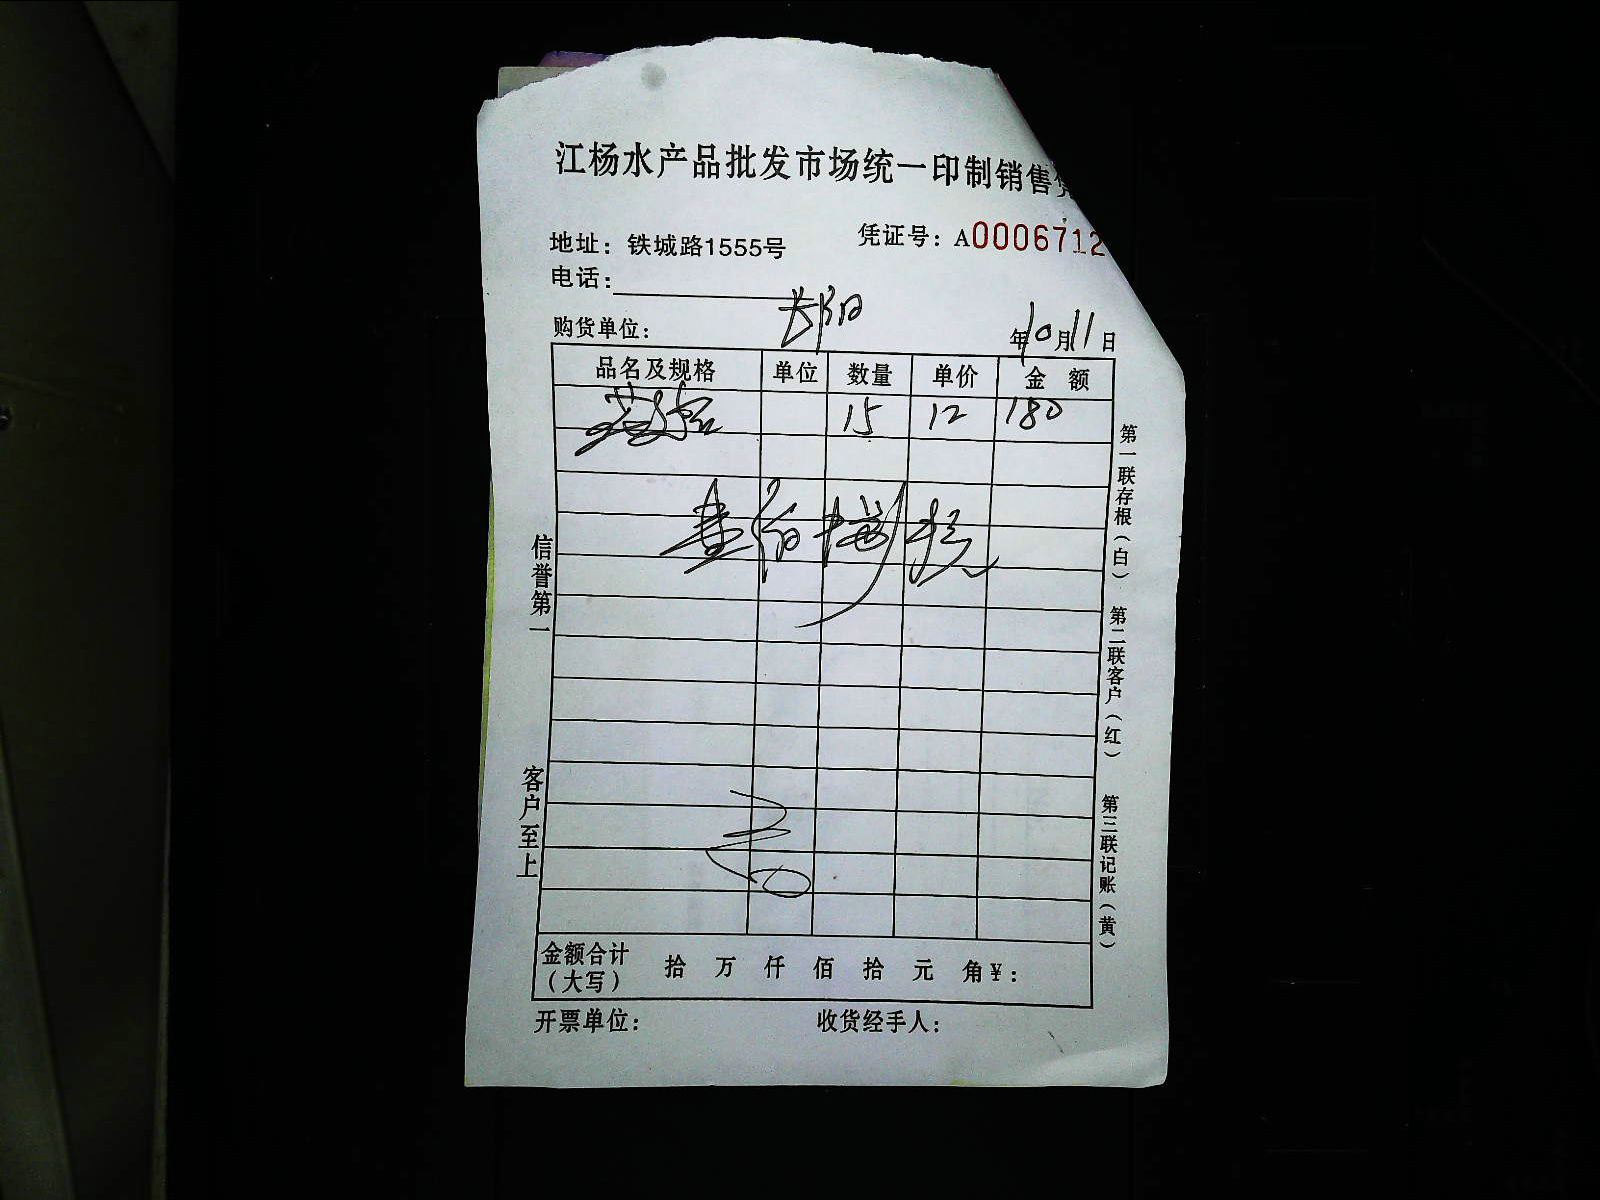 江杨水产品批发市场统一印制销售凭
地址：铁城路1555号
凭证号：A0006712
电话：
购货单位：
年10月11日
品名及规格 单位 数量 单价 金额
15 12 180
壹佰捌拾元
信誉第一
客户至上
第一联存根（白）
第二联客户（红）
第三联记账（黄）
金额合计（大写） 拾 万 仟 佰 拾 元 角 ¥：
开票单位：
收货经手人：